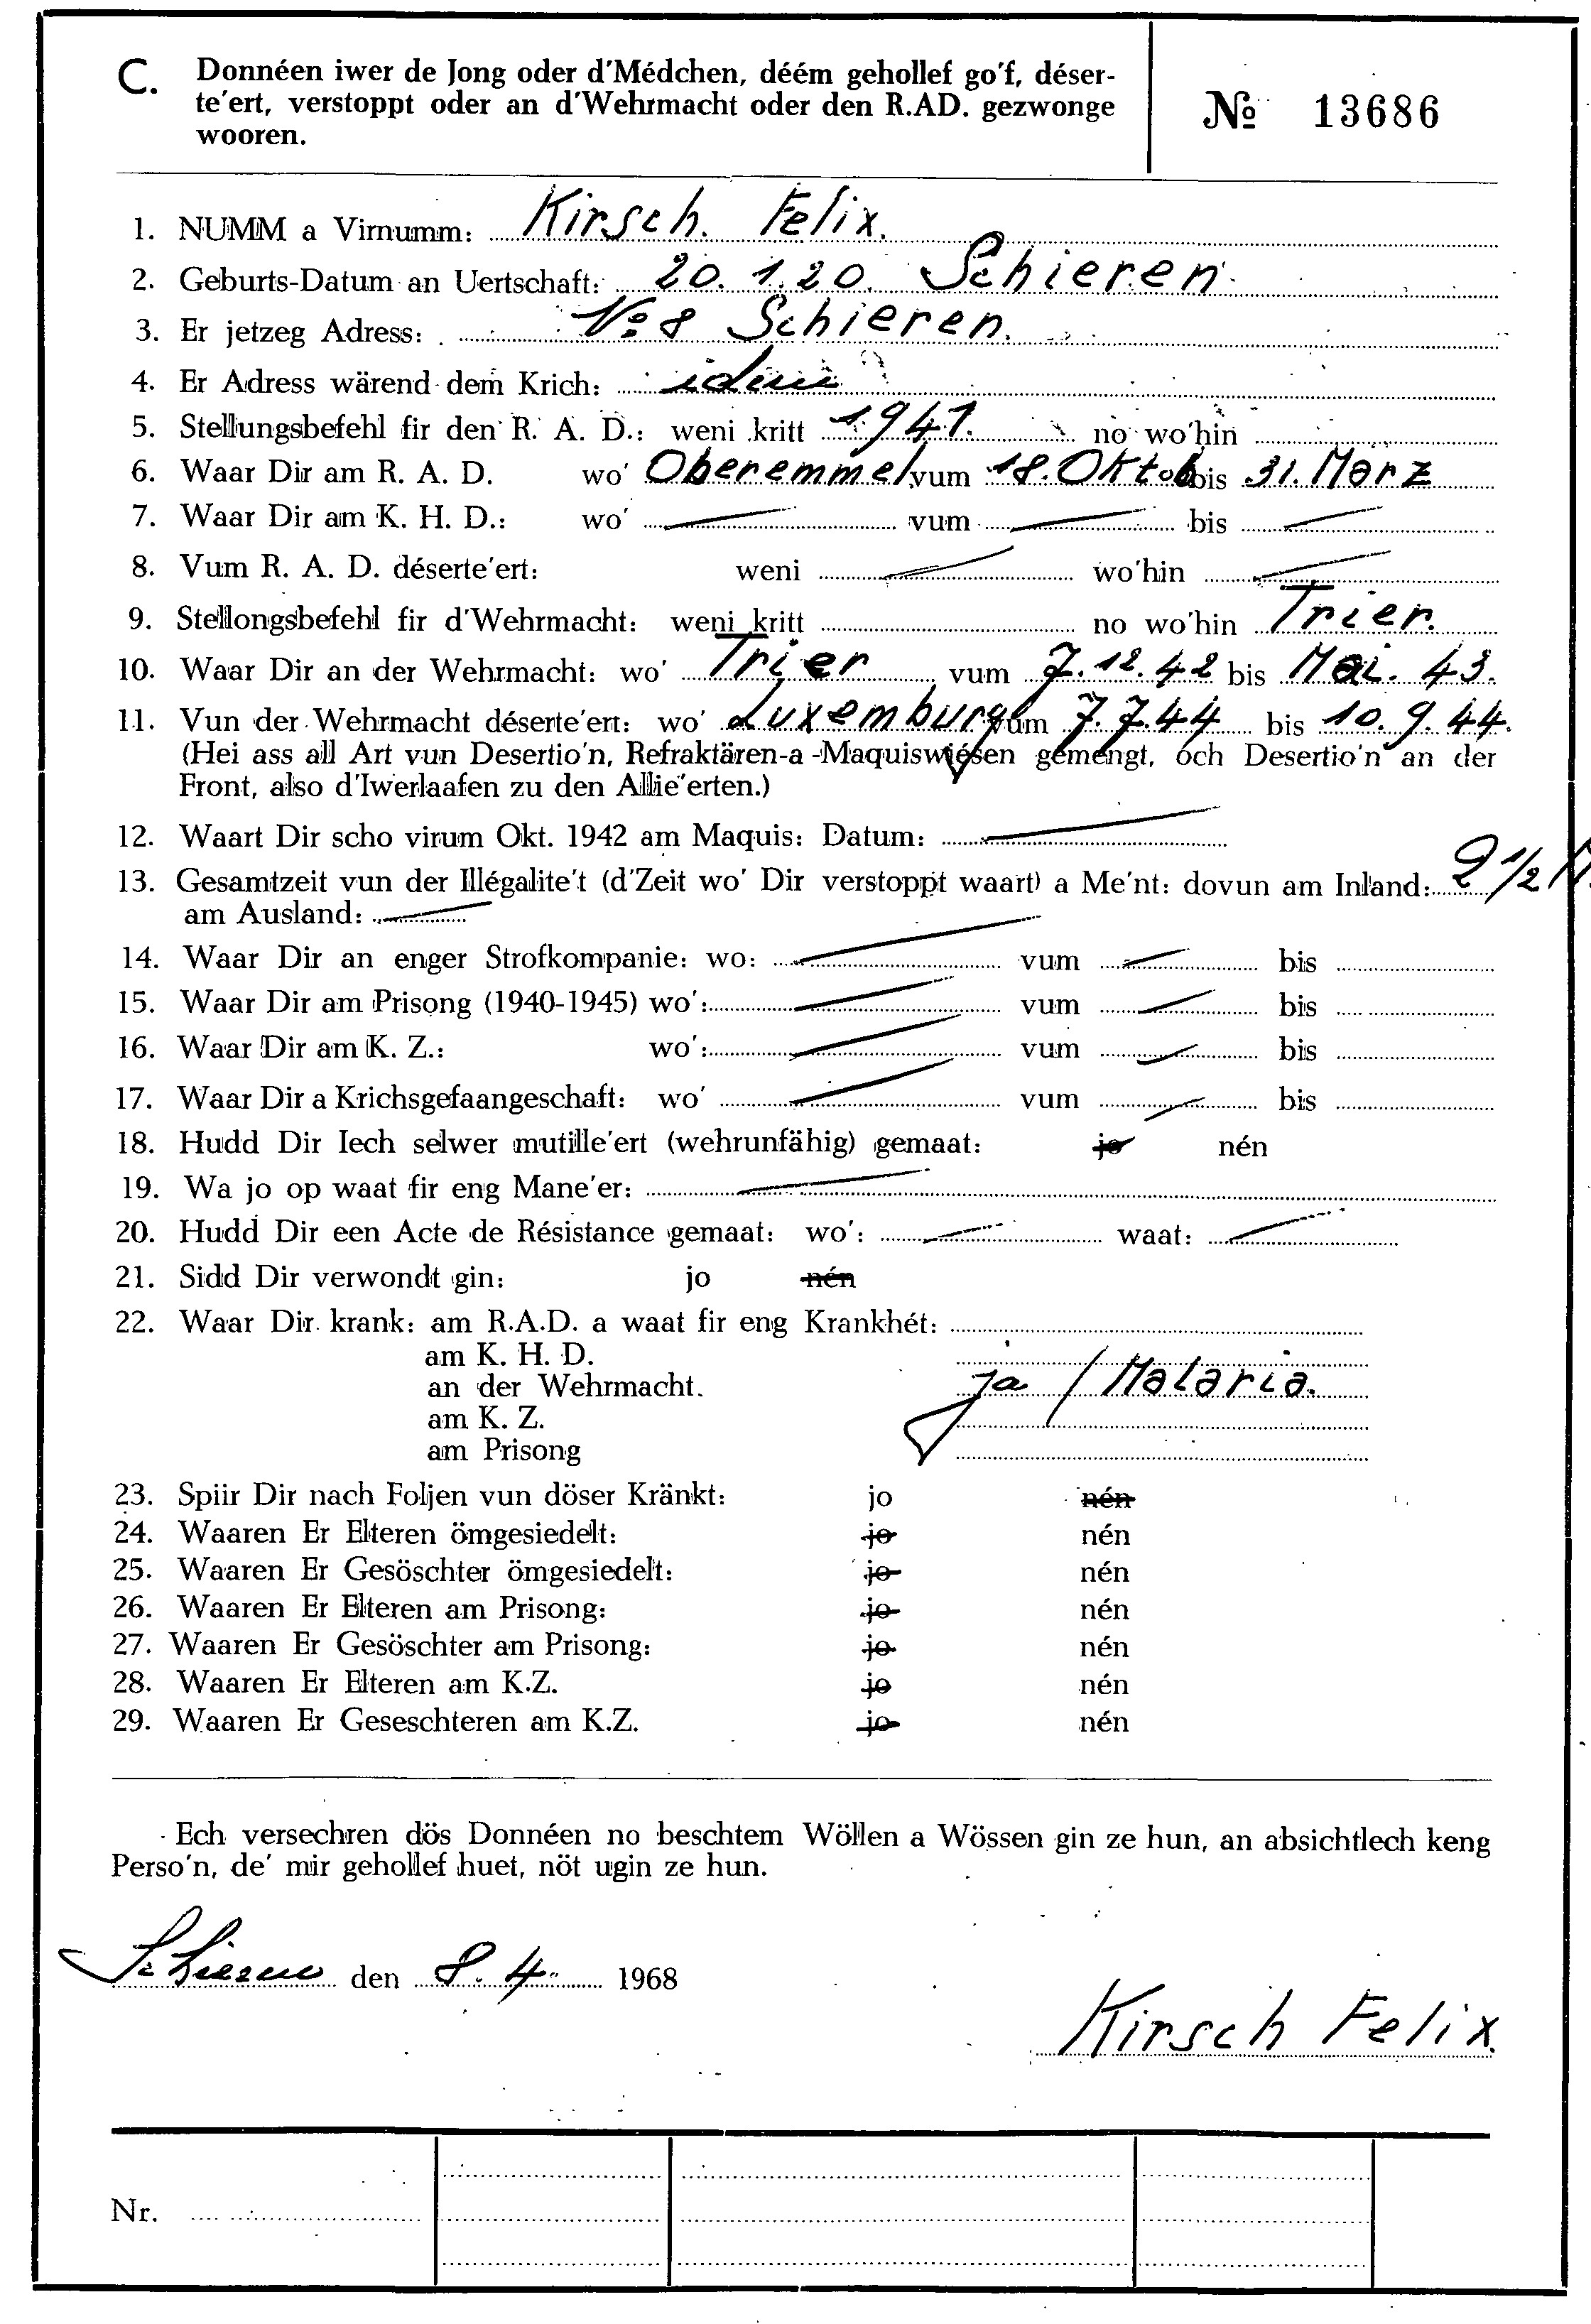 C. Donnéen iwer de Jong oder d'Médchen, déém gehollef go'f, déser-
te'ert, verstoppt oder an d'Wehrmacht oder den R.AD. gezwonge
wooren.
№ 13686
1. NUMM a Virnumm: Kirsch. Felix.
2. Geburts-Datum an Uertschaft: 20.1.20. Schieren
3. Er jetzeg Adress: No 8 Schieren.
4. Er Adress wärend dem Krich: idem
5. Stellungsbefehl fir den R. A. D.: weni kritt 1941. no wo'hin
6. Waar Dir am R. A. D. wo' Oberemmel vum 18. Oktob bis 31. März
7. Waar Dir am K. H. D.: wo' vum bis
8. Vum R. A. D. déserte'ert: weni wo'hin
9. Stellongsbefehl fir d'Wehrmacht: weni kritt no wo'hin Trier.
10. Waar Dir an der Wehrmacht: wo' Trier vum 7.12.42 bis Mai. 43.
11. Vun der Wehrmacht déserte'ert: wo' Luxemburg vum 7.7.44 bis 10.9.44.
(Hei ass all Art vun Desertio'n, Refraktären-a-Maquiswiésen gemengt, och Desertio'n an der
Front, also d'Iwerlaafen zu den Allie'erten.)
12. Waart Dir scho virum Okt. 1942 am Maquis: Datum:
13. Gesamtzeit vun der Illégalite't (d'Zeit wo' Dir verstoppt waart) a Me'nt: dovun am Inland: 2 1/2 M.
am Ausland:
14. Waar Dir an enger Strofkompanie: wo: vum bis
15. Waar Dir am Prisong (1940-1945) wo': vum bis
16. Waar Dir am K. Z.: wo': vum bis
17. Waar Dir a Krichsgefaangeschaft: wo' vum bis
18. Hudd Dir Iech selwer mutille'ert (wehrunfähig) gemaat: jo nén
19. Wa jo op waat fir eng Mane'er:
20. Hudd Dir een Acte de Résistance gemaat: wo': waat:
21. Sidd Dir verwondt gin: jo nén
22. Waar Dir krank: am R.A.D. a waat fir eng Krankhét:
am K. H. D.
an der Wehrmacht. ja / Malaria.
am K. Z.
am Prisong
23. Spiir Dir nach Foljen vun döser Kränkt: jo nén
24. Waaren Er Elteren ömgesiedelt: jo nén
25. Waaren Er Gesöschter ömgesiedelt: jo nén
26. Waaren Er Elteren am Prisong: jo nén
27. Waaren Er Gesöschter am Prisong: jo nén
28. Waaren Er Elteren am K.Z. jo nén
29. Waaren Er Geseschteren am K.Z. jo nén
Ech versechren dös Donnéen no beschtem Wöllen a Wössen gin ze hun, an absichtlech keng
Perso'n, de' mir gehollef huet, nöt ugin ze hun.
Schieren den 8.4. 1968
Kirsch Felix.
Nr.